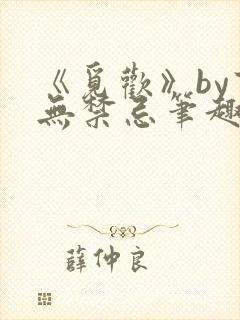 《覓歡》by
無禁忌筆趣
薛仲良